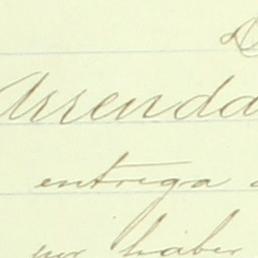 Arrenda
entrega
por haber